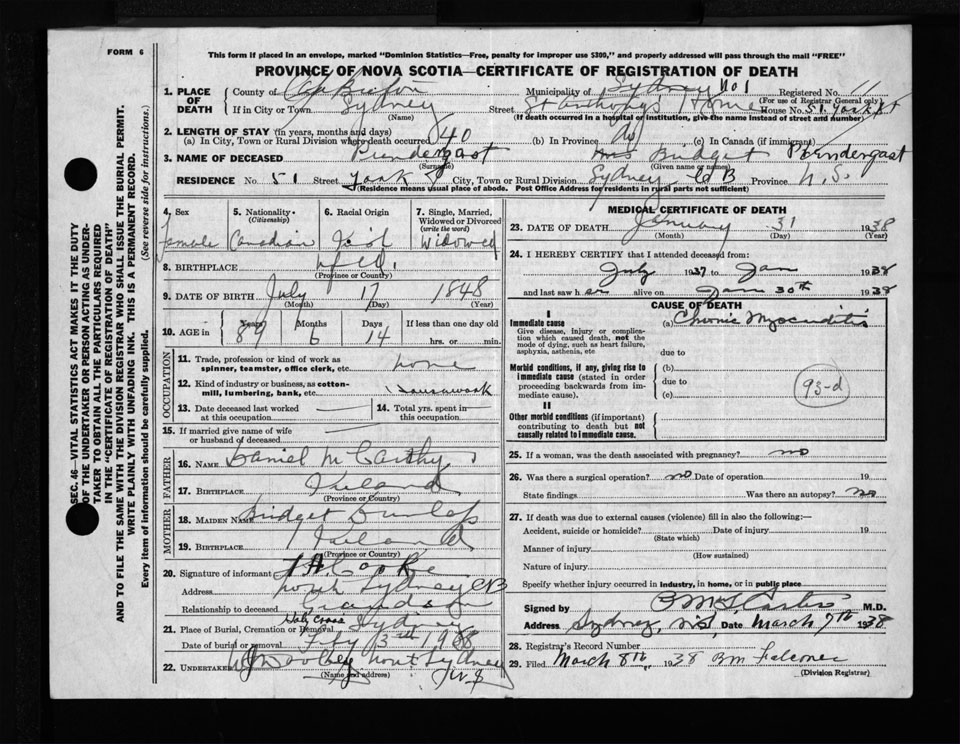 FORM 6
This form if placed in an envelope, marked "Dominion Statistics—Free, penalty for improper use $300," and properly addressed will pass through the mail "FREE"
PROVINCE OF NOVA SCOTIA—CERTIFICATE OF REGISTRATION OF DEATH
1. PLACE OF DEATH
County of Cape Breton Municipality of Sydney No 1 Registered No. 11
(For use of Registrar General only)
If in City or Town Sydney Street St Anthony's Home House No. 51 York St
(Name) (If death occurred in a hospital or institution, give the name instead of street and number)
2. LENGTH OF STAY (in years, months and days)
(a) In City, Town or Rural Division where death occurred 40 (b) In Province (c) In Canada (if immigrant)
3. NAME OF DECEASED Prendergast Mrs Bridget Prendergast
(Surname) (Given name or names)
RESIDENCE No. 51 Street York St City, Town or Rural Division Sydney CB Province N.S.
(Residence means usual place of abode. Post Office Address for residents in rural parts not sufficient)
4. Sex female
5. Nationality (Citizenship) Canadian
6. Racial Origin Irish
7. Single, Married, Widowed or Divorced (write the word) Widowed
8. BIRTHPLACE Nfld.
(Province or Country)
9. DATE OF BIRTH July 17 1848
(Month) (Day) (Year)
10. AGE in Years Months Days If less than one day old
89 6 14 hrs. or min.
OCCUPATION
11. Trade, profession or kind of work as spinner, teamster, office clerk, etc. none
12. Kind of industry or business, as cotton-mill, lumbering, bank, etc. Housework
13. Date deceased last worked at this occupation
14. Total yrs. spent in this occupation
15. If married give name of wife or husband of deceased
FATHER
16. NAME Daniel McCarthy
17. BIRTHPLACE Ireland
(Province or Country)
MOTHER
18. MAIDEN NAME Bridget Dunlap
19. BIRTHPLACE Ireland
(Province or Country)
20. Signature of informant
Address North Sydney CB
Relationship to deceased Grandson
21. Place of Burial, Cremation or Removal Holy Cross Sydney
Date of burial or removal Feby 3rd 1938
22. UNDERTAKER North Sydney
(Name and address) N.S
MEDICAL CERTIFICATE OF DEATH
23. DATE OF DEATH January 31 1938
(Month) (Day) (Year)
24. I HEREBY CERTIFY that I attended deceased from:
July 1937 to Jan 1938
and last saw her alive on Jan 30th 1938
CAUSE OF DEATH
I
Immediate cause (a) Chronic Myocarditis
Give disease, injury or complication which caused death, not the mode of dying, such as heart failure, asphyxia, asthenia, etc due to
Morbid conditions, if any, giving rise to immediate cause (stated in order proceeding backwards from immediate cause). (b)
due to
(c)
93-d
II
Other morbid conditions (if important) contributing to death but not causally related to immediate cause.
25. If a woman, was the death associated with pregnancy? no
26. Was there a surgical operation? no Date of operation 19
State findings Was there an autopsy? no
27. If death was due to external causes (violence) fill in also the following:—
Accident, suicide or homicide? Date of injury 19
(State which)
Manner of injury
(How sustained)
Nature of injury
Specify whether injury occurred in industry, in home, or in public place
Signed by M.D.
Address Sydney, N.S. Date March 7th 1938
28. Registrar's Record Number
29. Filed March 8th, 1938 BM Falconer
(Division Registrar)
SEC. 46—VITAL STATISTICS ACT MAKES IT THE DUTY
OF THE UNDERTAKER OR PERSON ACTING AS UNDER-
TAKER TO OBTAIN ALL THE PARTICULARS REQUIRED
IN THE "CERTIFICATE OF REGISTRATION OF DEATH"
AND TO FILE THE SAME WITH THE DIVISION REGISTRAR WHO SHALL ISSUE THE BURIAL PERMIT.
WRITE PLAINLY WITH UNFADING INK. THIS IS A PERMANENT RECORD.
Every item of information should be carefully supplied. (See reverse side for instructions.)